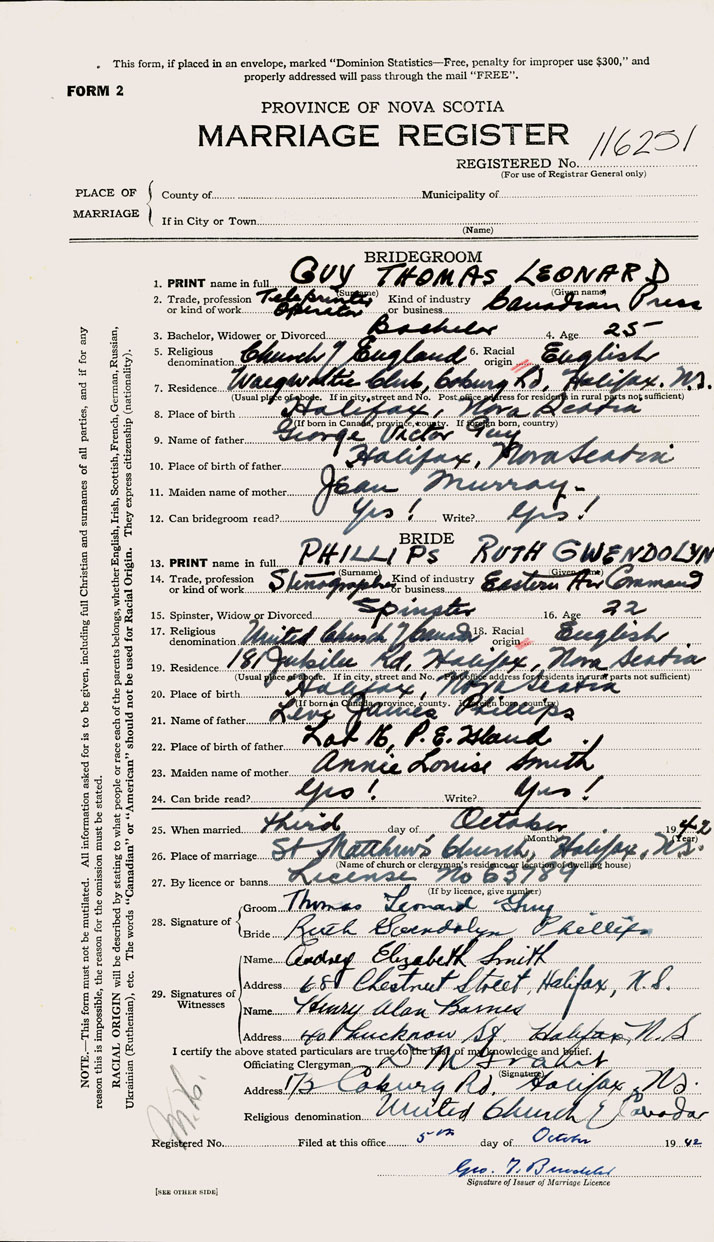 This form, if placed in an envelope, marked "Dominion Statistics—Free, penalty for improper use $300," and
properly addressed will pass through the mail "FREE".
FORM 2
PROVINCE OF NOVA SCOTIA
MARRIAGE REGISTER
REGISTERED No. 116251
(For use of Registrar General only)
PLACE OF MARRIAGE
County of Municipality of
If in City or Town
(Name)
BRIDEGROOM
1. PRINT name in full GUY THOMAS LEONARD
(Surname) (Given name)
2. Trade, profession or kind of work Teleprinter Operator Kind of industry or business Canadian Press
3. Bachelor, Widower or Divorced Bachelor 4. Age 25
5. Religious denomination Church of England 6. Racial origin English
7. Residence Waegwoltic Club, Coburg Rd, Halifax. N.S.
(Usual place of abode. If in city, street and No. Post office address for residents in rural parts not sufficient)
8. Place of birth Halifax, Nova Scotia
(If born in Canada, province, county. If foreign born, country)
9. Name of father George Victor Guy
10. Place of birth of father Halifax, Nova Scotia
11. Maiden name of mother Jean Murray
12. Can bridegroom read? Yes! Write? Yes!
BRIDE
13. PRINT name in full PHILLIPS RUTH GWENDOLYN
(Surname) (Given name)
14. Trade, profession or kind of work Stenographer Kind of industry or business Eastern Air Command
15. Spinster, Widow or Divorced Spinster 16. Age 22
17. Religious denomination United Church of Canada 18. Racial origin English
19. Residence 181 Jubilee Rd, Halifax, Nova Scotia
(Usual place of abode. If in city, street and No. Post office address for residents in rural parts not sufficient)
20. Place of birth Halifax, Nova Scotia
(If born in Canada, province, county. If foreign born, country)
21. Name of father Levi James Phillips
22. Place of birth of father Lot 16, P.E. Island
23. Maiden name of mother Annie Louise Smith
24. Can bride read? Yes! Write? Yes!
25. When married third day of October 1942
(Month) (Year)
26. Place of marriage St Matthew's Church, Halifax, N.S.
(Name of church or clergyman's residence or location of dwelling house)
27. By licence or banns License No 63789
(If by licence, give number)
28. Signature of
Groom Thomas Leonard Guy
Bride Ruth Gwendolyn Phillips
29. Signatures of Witnesses
Name Audrey Elizabeth Smith
Address 68 Chestnut Street, Halifax, N.S.
Name Henry Alan Barnes
Address 40 Lucknow St. Halifax, N.S
I certify the above stated particulars are true to the best of my knowledge and belief.
Officiating Clergyman D M Grant
(Signature)
Address Coburg Rd, Halifax, N.S.
Religious denomination United Church of Canada
Registered No. Filed at this office 5th day of October 1942
Geo. T.
Signature of Issuer of Marriage Licence
[SEE OTHER SIDE]
NOTE.—This form must not be mutilated. All information asked for is to be given, including full Christian and surnames of all parties, and if for any
reason this is impossible, the reason for the omission must be stated.
RACIAL ORIGIN will be described by stating to what people or race each of the parents belongs, whether English, Irish, Scottish, French, German, Russian,
Ukrainian (Ruthenian), etc. The words "Canadian" or "American" should not be used for Racial Origin. They express citizenship (nationality).